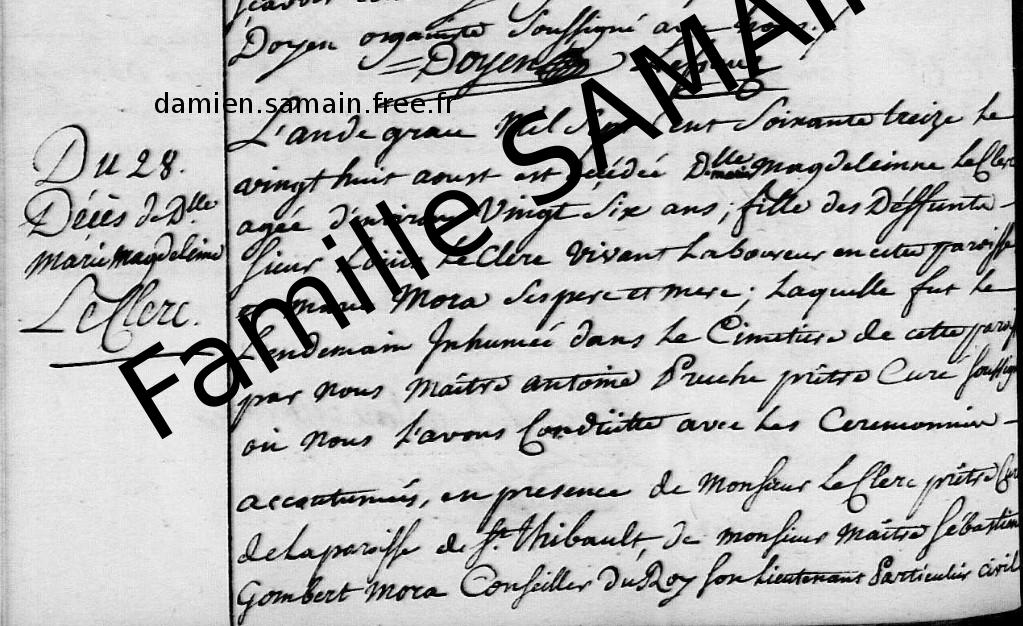 Doyen organiste Soussigné avec Nous.
Doyen
damien.samain.free.fr
Famille SAMAIN
Du 28.
Décès de Dlle
marie magdeleine
Le Clerc.
L'an de grace Mil Sept Cent Soixante treize le
vingt huit aoust est décédée Dlle marie Magdeleinne Le Clerc
agée d'environ Vingt Six ans, fille des Deffunts
Sieur Louis Le Clerc vivant Laboureur en cette paroisse
et Marie Mora Ses pere et mere; Laquelle fut le
Lendemain Inhumée dans le Cimetiere de cette paroi
par nous Maître antoine prêtre Curé soussign
où nous l'avons Conduitte avec les Ceremonies
accoutumées, en presence de Monsieur Le Clerc prêtre Cur
de la paroisse de St Thibault, de monsieur Maître Sébastien
Gombert Mora Conseiller du Roy son Lieutenant Particulier civil